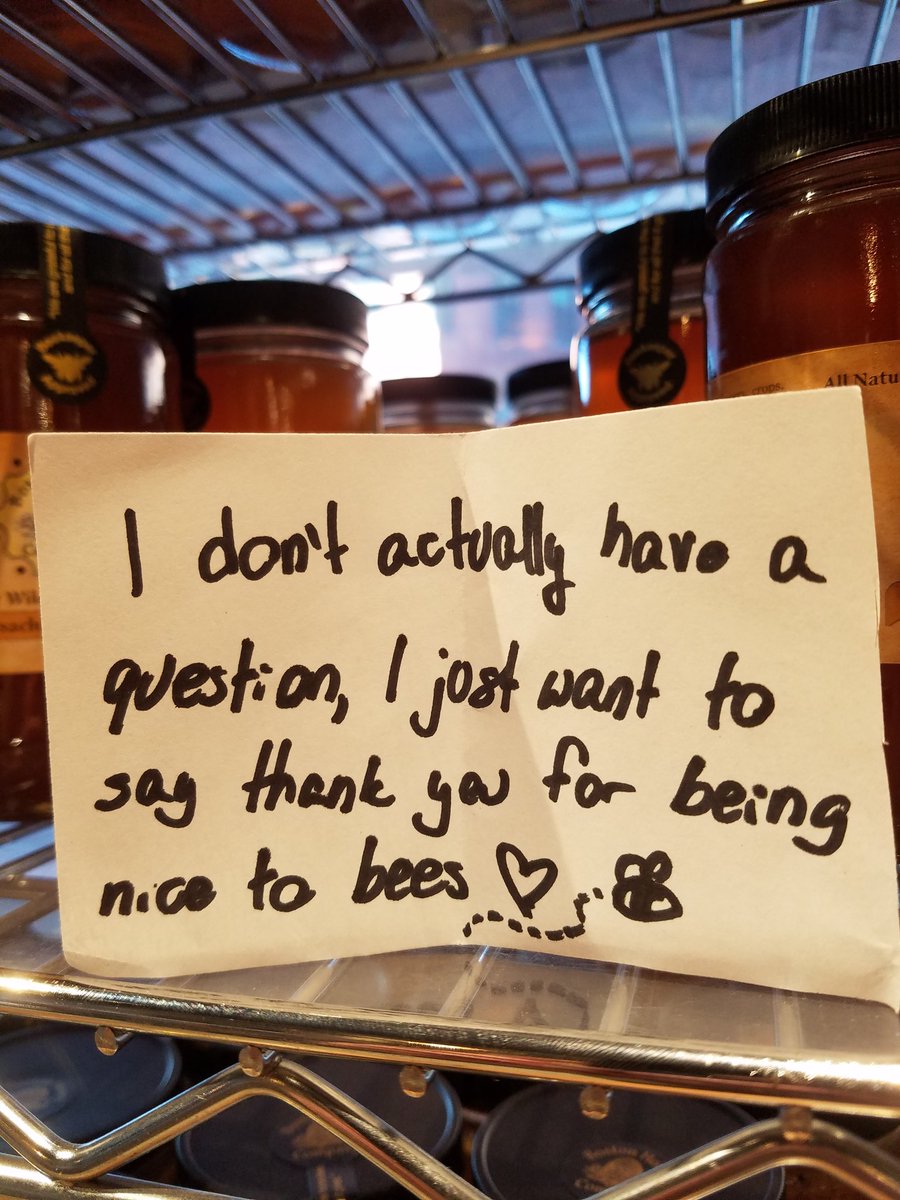 All Natu
crops.
I don't actually have a
question, I just want to
say thank you for being
nice to bees